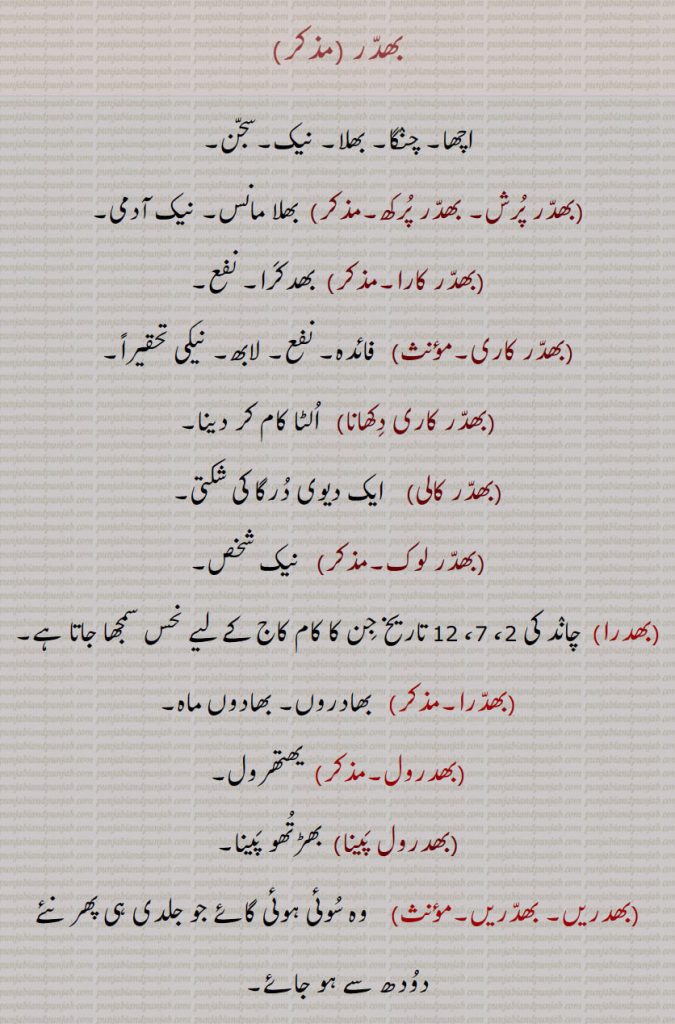 بھدّر (مذکر)
اچھا۔ چنگا۔ بھلا۔ نیک۔ سجّن۔
(بھدّر پُرش۔ بھدّر پُرکھ۔مذکر) بھلا مانس۔ نیک آدمی۔
(بھدّر کارا۔مذکر) بھدکَرا۔ نفع۔
(بھدّر کاری۔مؤنث) فائدہ۔ نفع۔ لابھ۔ نیکی تحقیراً۔
(بھدّر کاری دِکھانا) اُلٹا کام کر دینا۔
(بھدّر کالی) ایک دیوی دُرگا کی شکتی۔
(بھدّر لوک۔مذکر) نیک شخص۔
(بھدرا) چاند کی 2، 7، 12 تاریخ جِن کا کام کاج کے لیے نحس سمجھا جاتا ہے۔
(بھدّرا۔مذکر) بھادروں۔ بھادوں ماہ۔
(بھدرول۔مذکر) بھتھرول۔
(بھدرول پَینا) بھڑتُھو پَینا۔
(بھدریں۔ بھدّریں۔مؤنث) وہ سُوئی ہوئی گائے جو جلدی ہی پھر نئے
دوُدھ سے ہو جائے۔